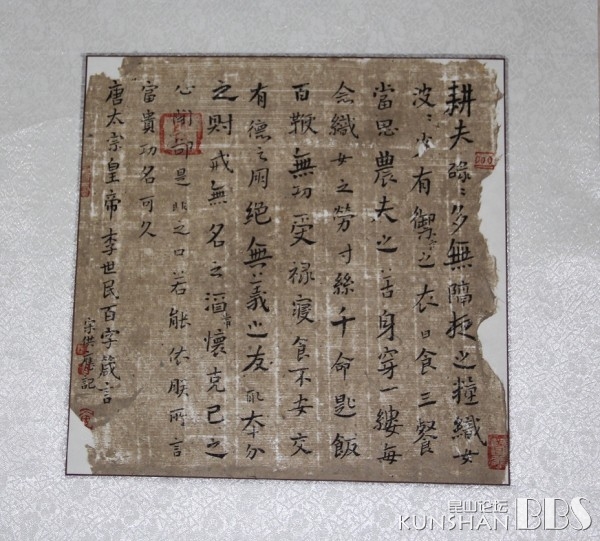 耕夫碌〻多無隔之糧織女
波〻少有禦之衣日食三餐
當思農夫之苦身穿一縷每
念織女之勞寸絲千命匙飯
百鞭無功受禄寢食不安交
有德之朋絕無義之友取本分
之財戒無名之酒常懷克己之
心閉却是非之口若能依朕所言
富貴功名可久
唐太宗皇帝李世民百字箴言
宋記
昆山论坛
KUNSHAN BBS